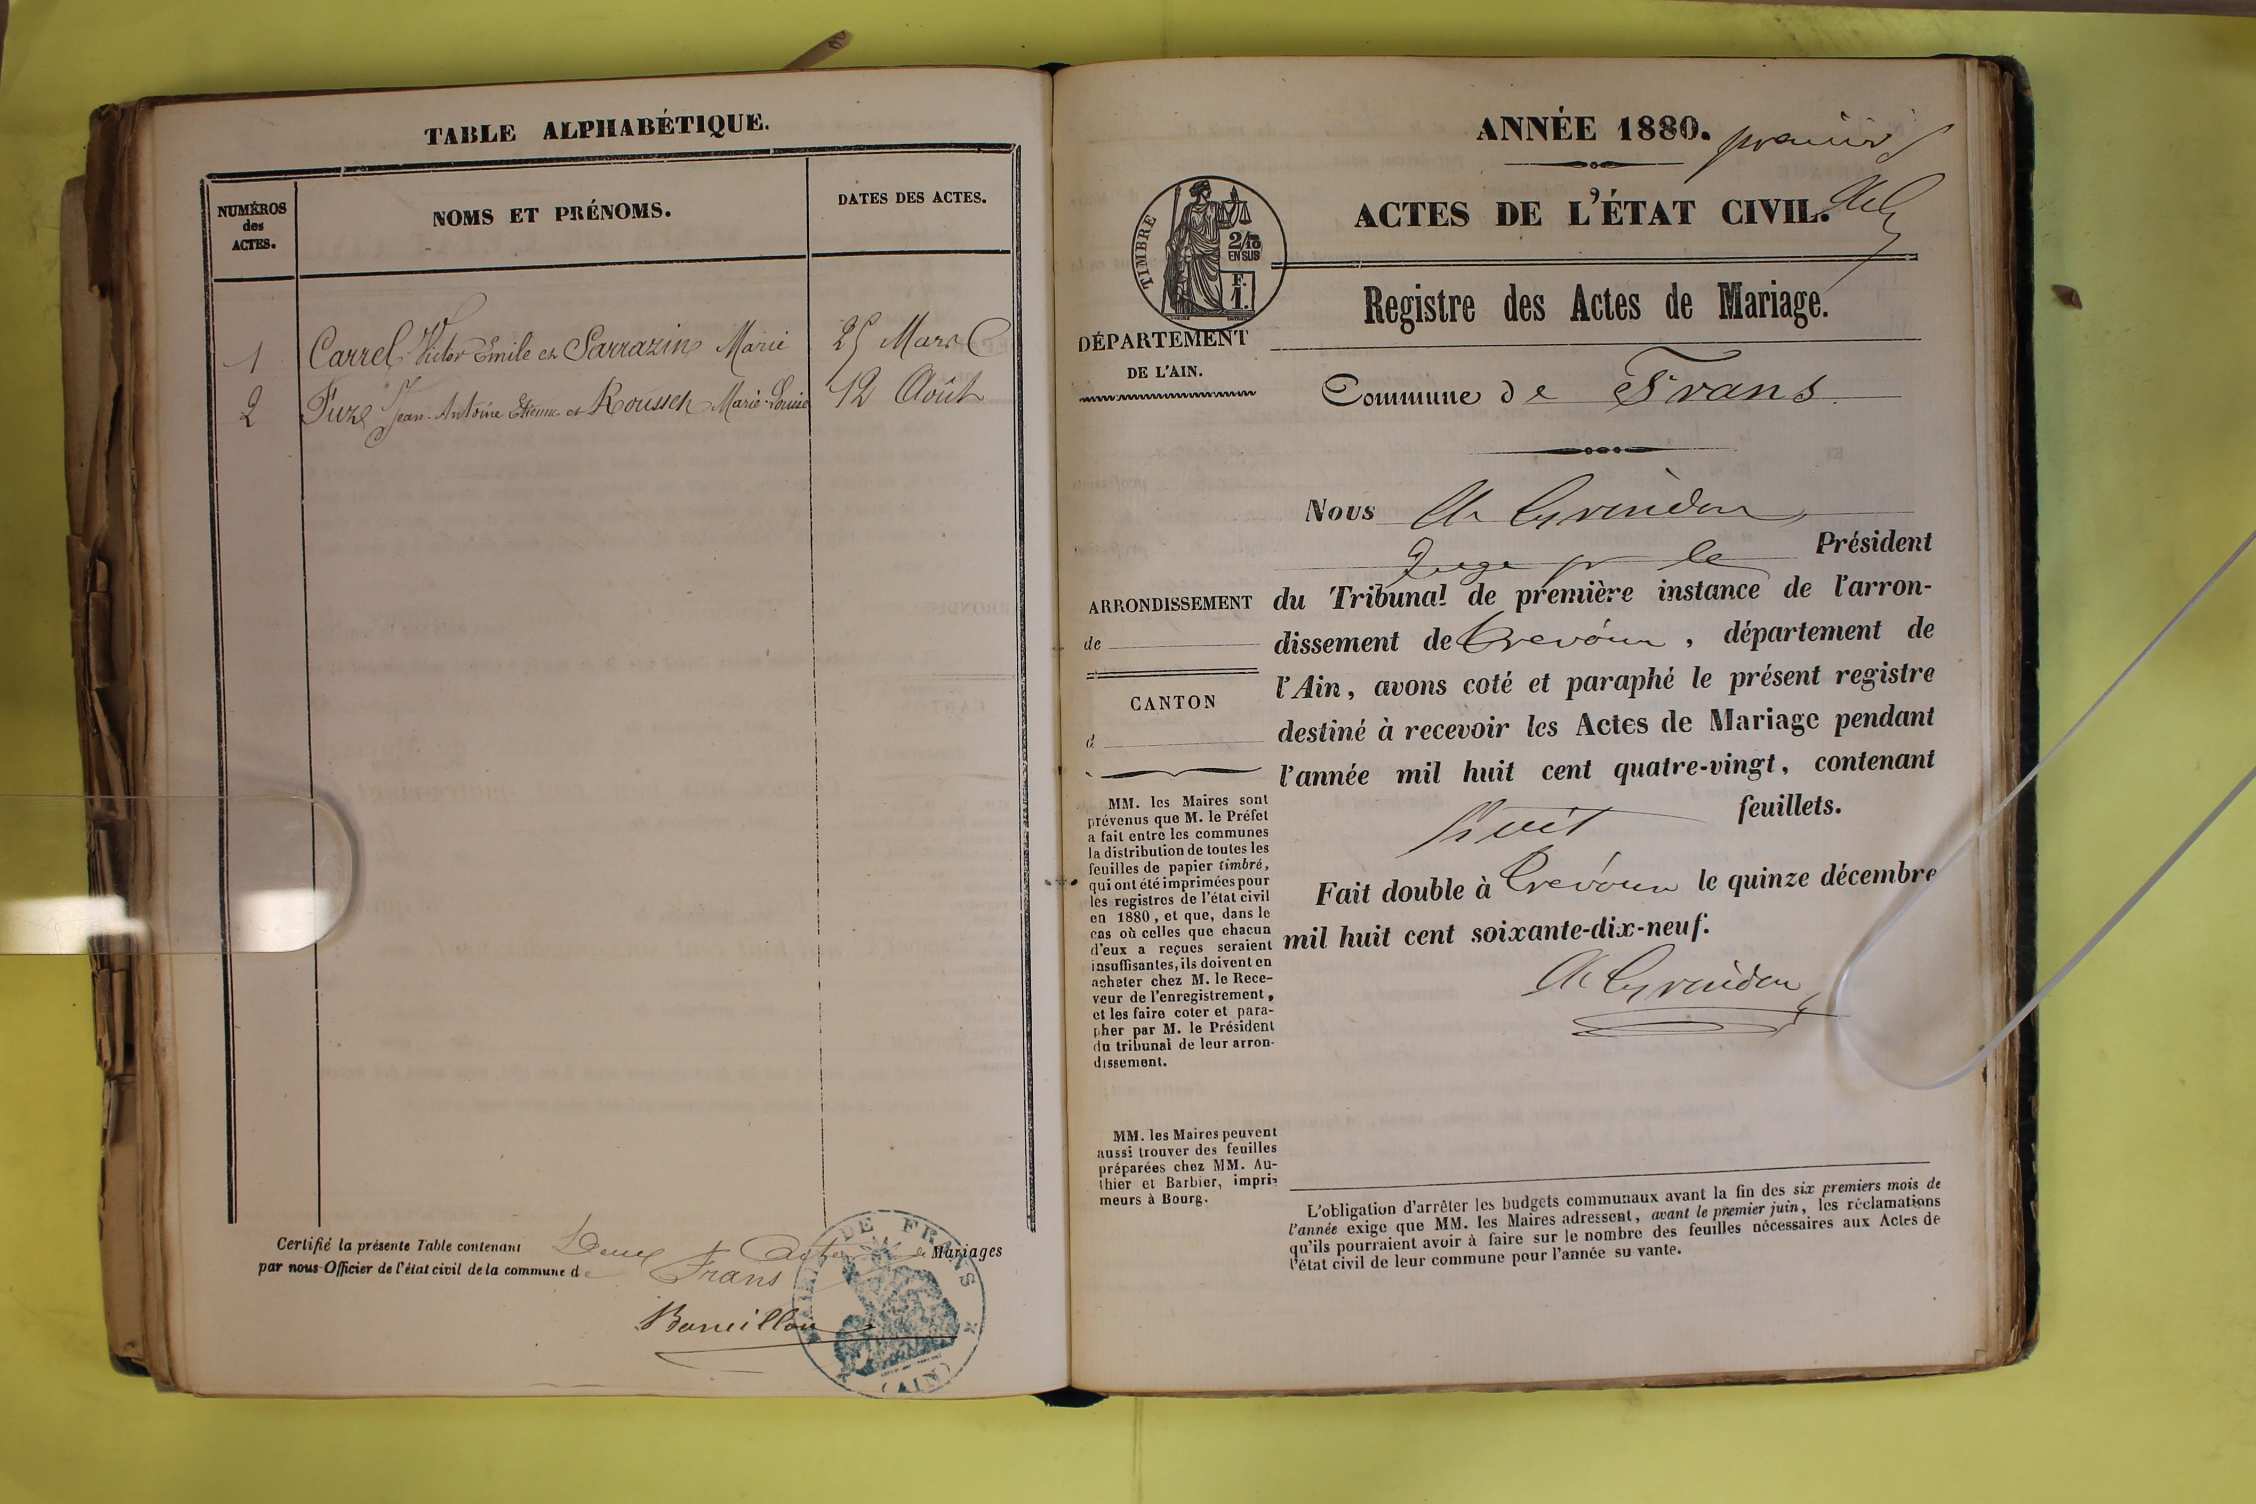 TABLE ALPHABÉTIQUE.
NUMÉROS
des
ACTES.
NOMS ET PRÉNOMS.
DATES DES ACTES.
1 Carrel Victor Emile et Sarrazin Marie 25 Mars
2 Fuze Jean-Antoine Etienne et Rousset Marie-Louise 12 Août
Certifié la présente Table contenant Deux Actes de Mariages
par nous Officier de l'état civil de la commune de Frans
MAIRIE DE FRANS
(AIN)
ANNÉE 1880.
premier
ACTES DE L'ÉTAT CIVIL.
TIMBRE
2/10
EN SUS
F.
1.
Registre des Actes de Mariage.
DÉPARTEMENT
DE L'AIN.
Commune de Frans
Nous
Juge pr le Président
ARRONDISSEMENT
de
CANTON
d
du Tribunal de première instance de l'arron-
dissement de Trévoux, département de
l'Ain, avons coté et paraphé le présent registre
destiné à recevoir les Actes de Mariage pendant
l'année mil huit cent quatre-vingt, contenant
huit feuillets.
Fait double à Trévoux le quinze décembre
mil huit cent soixante-dix-neuf.
MM. les Maires sont
prévenus que M. le Préfet
a fait entre les communes
la distribution de toutes les
feuilles de papier timbré,
qui ont été imprimées pour
les registres de l'état civil
en 1880, et que, dans le
cas où celles que chacun
d'eux a reçues seraient
insuffisantes, ils doivent en
acheter chez M. le Rece-
veur de l'enregistrement,
et les faire coter et para-
pher par M. le Président
du tribunal de leur arron-
dissement.
MM. les Maires peuvent
aussi trouver des feuilles
préparées chez MM. Au-
thier et Barbier, impri-
meurs à Bourg.
L'obligation d'arrêter les budgets communaux avant la fin des six premiers mois de
l'année exige que MM. les Maires adressent, avant le premier juin, les réclamations
qu'ils pourraient avoir à faire sur le nombre des feuilles nécessaires aux Actes de
l'état civil de leur commune pour l'année su vante.